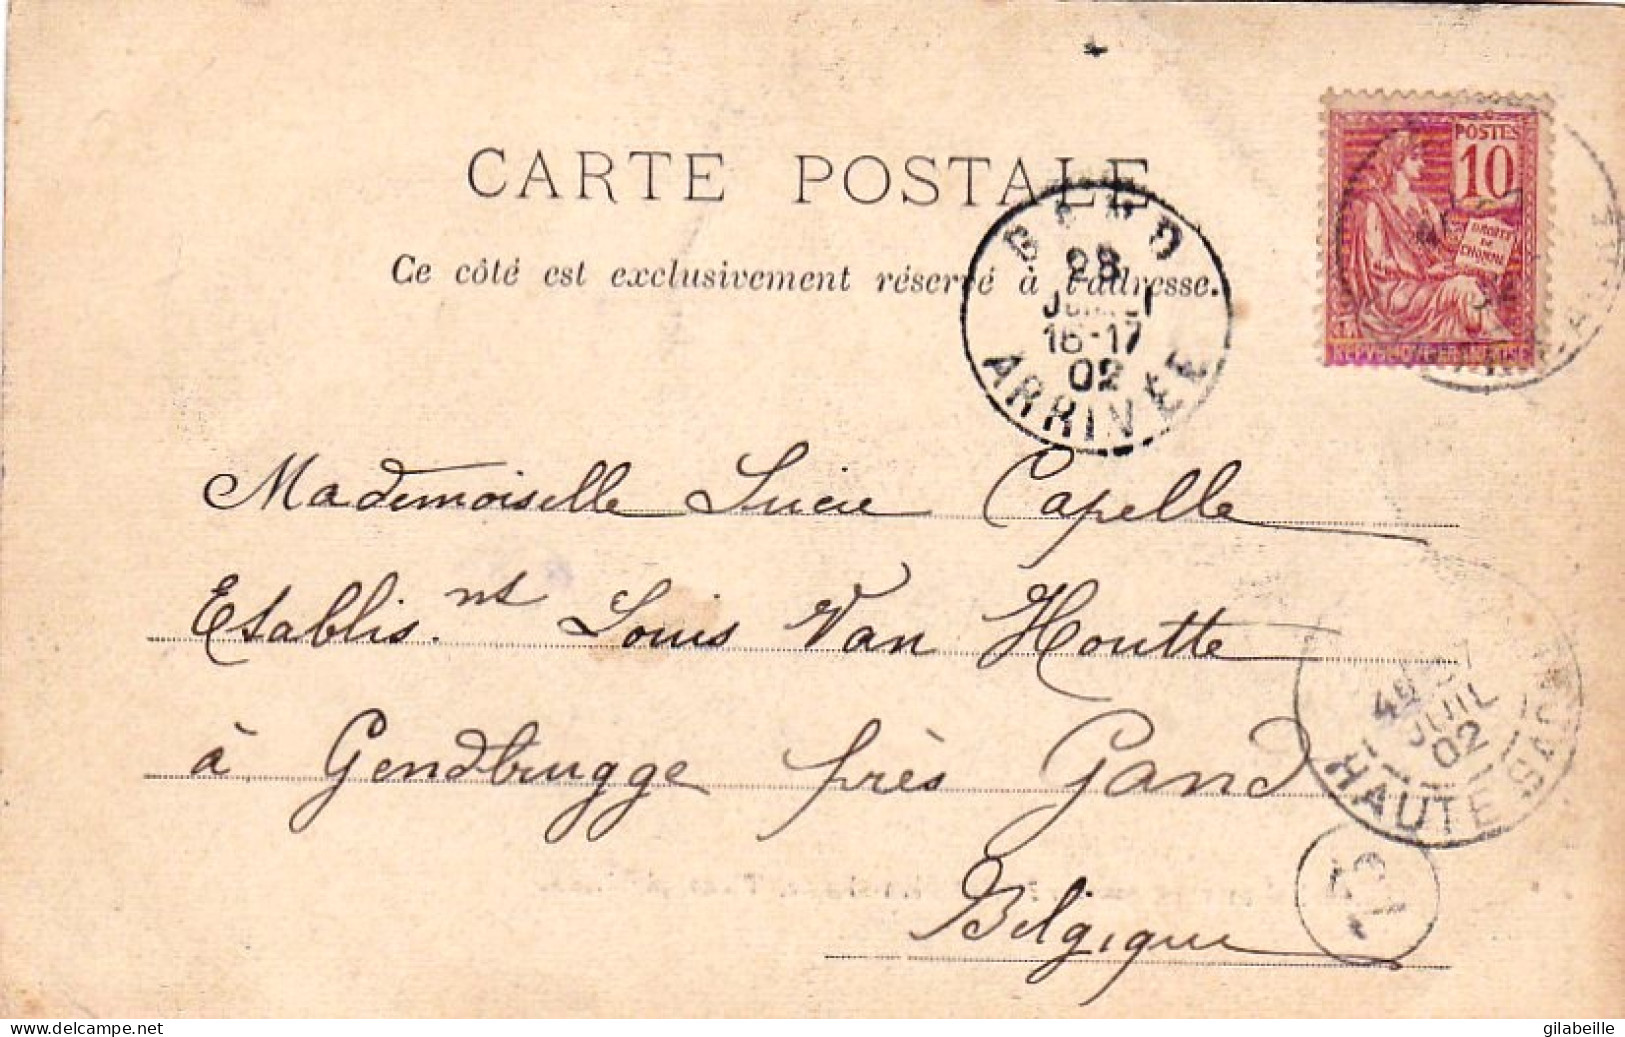 CARTE POSTALE
Ce côté est exclusivement réservé à l'adresse.
POSTES
10
DROITS
DE
L'HOMME
GAND
28
JUIL
16-17
02
ARRIVÉE
Mademoiselle Lucie Capelle
Etablis.nt Louis Van Houtte
à Gendbrugge près Gand
Belgique
JUIL
02
HAUTE SAONE
www.delcampe.net
gilabeille